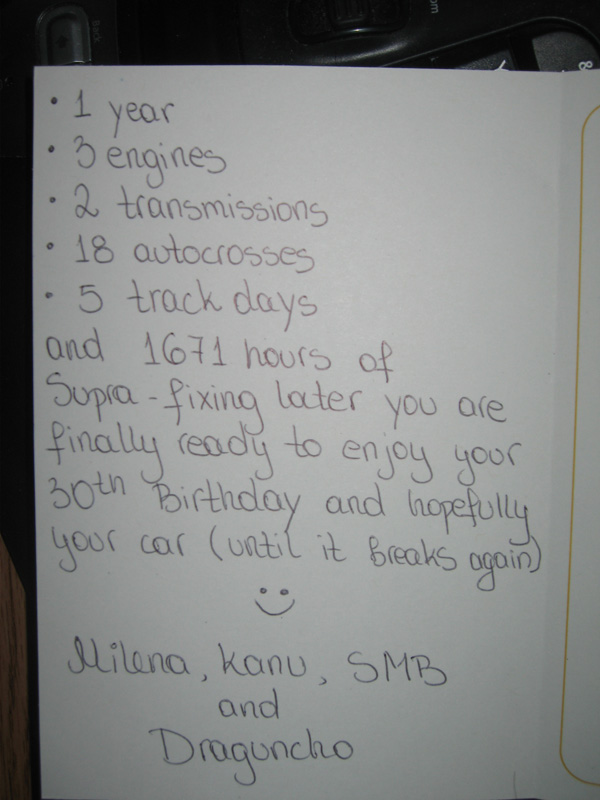 • 1 year
• 3 engines
• 2 transmissions
• 18 autocrosses
• 5 track days
and 1671 hours of
Supra-fixing later you are
finally ready to enjoy your
30th Birthday and hopefully
your car (until it breaks again)
Milena, Kanu, SMB
and
Draguncho